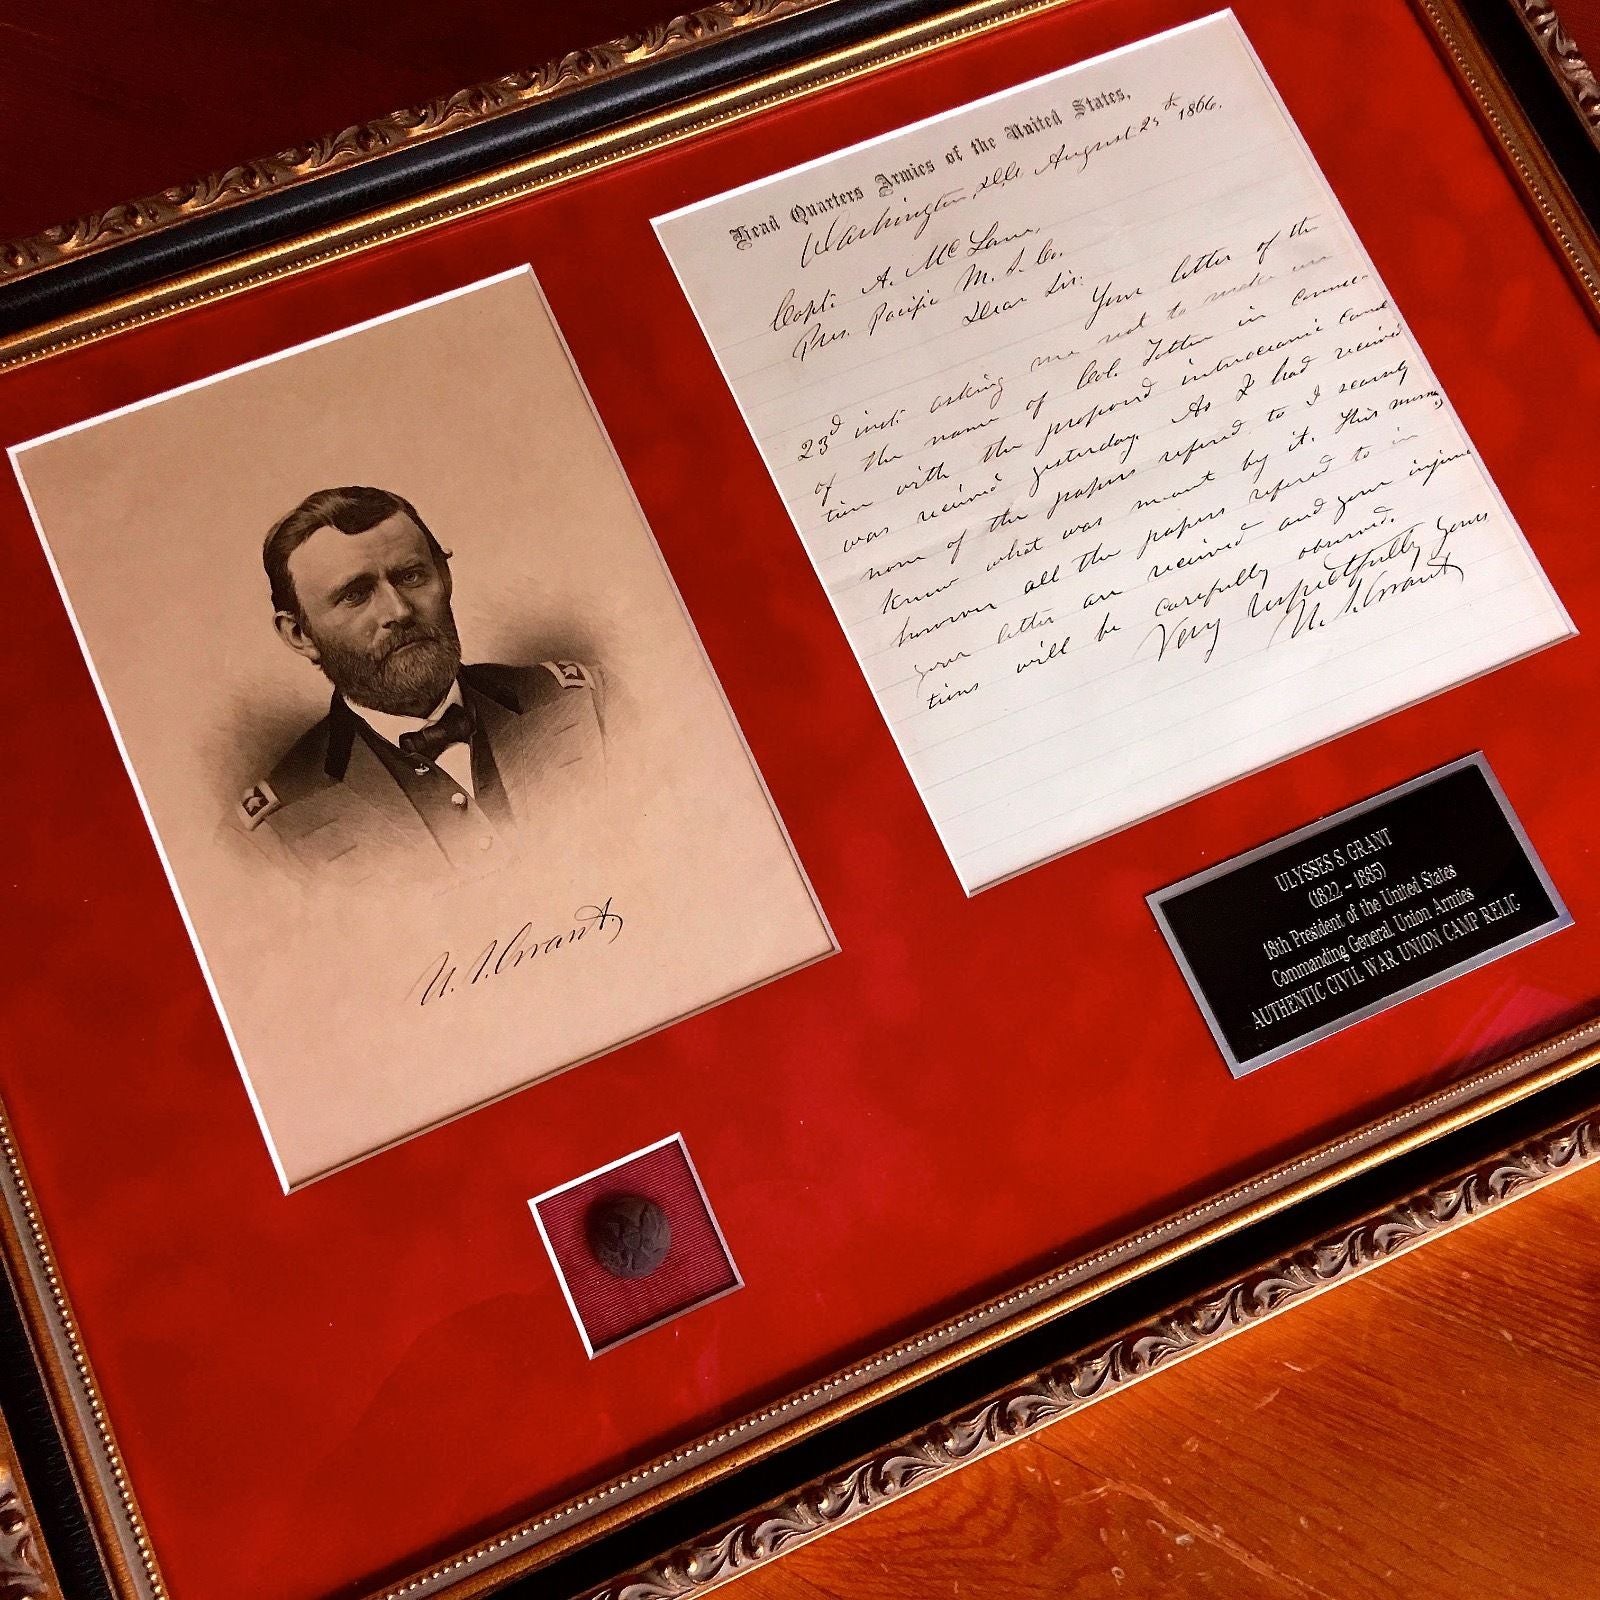 Head Quarters Armies of the United States,
Washington, D.C. August 25th 1866.
Capt. A. McLane,
Pres. Pacific M. S. Co.
Dear Sir:
Your letter of the
23d inst. asking me not to make use
of the name of Col. Totten in connec-
tion with the proposed interoceanic canal
was received yesterday. As I had received
none of the papers refered to I scarcely
knew what was meant by it. This morning
however all the papers refered to in
your letter are received and your injunc
tions will be carefully observed.
Very respectfully yours
U. S. Grant
U. S. Grant.
ULYSSES S. GRANT
(1822 - 1885)
18th President of the United States
Commanding General Union Armies
AUTHENTIC CIVIL WAR UNION CAMP RELIC